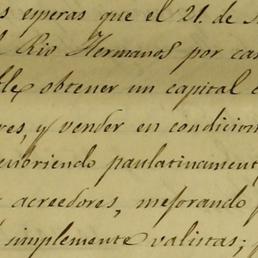 s esperas que el 21. de
Rio Hermanos por
ble obtener un capital
res, y vender en condicion
paulatinament
acreedores, mejorando
simplemente valistas;